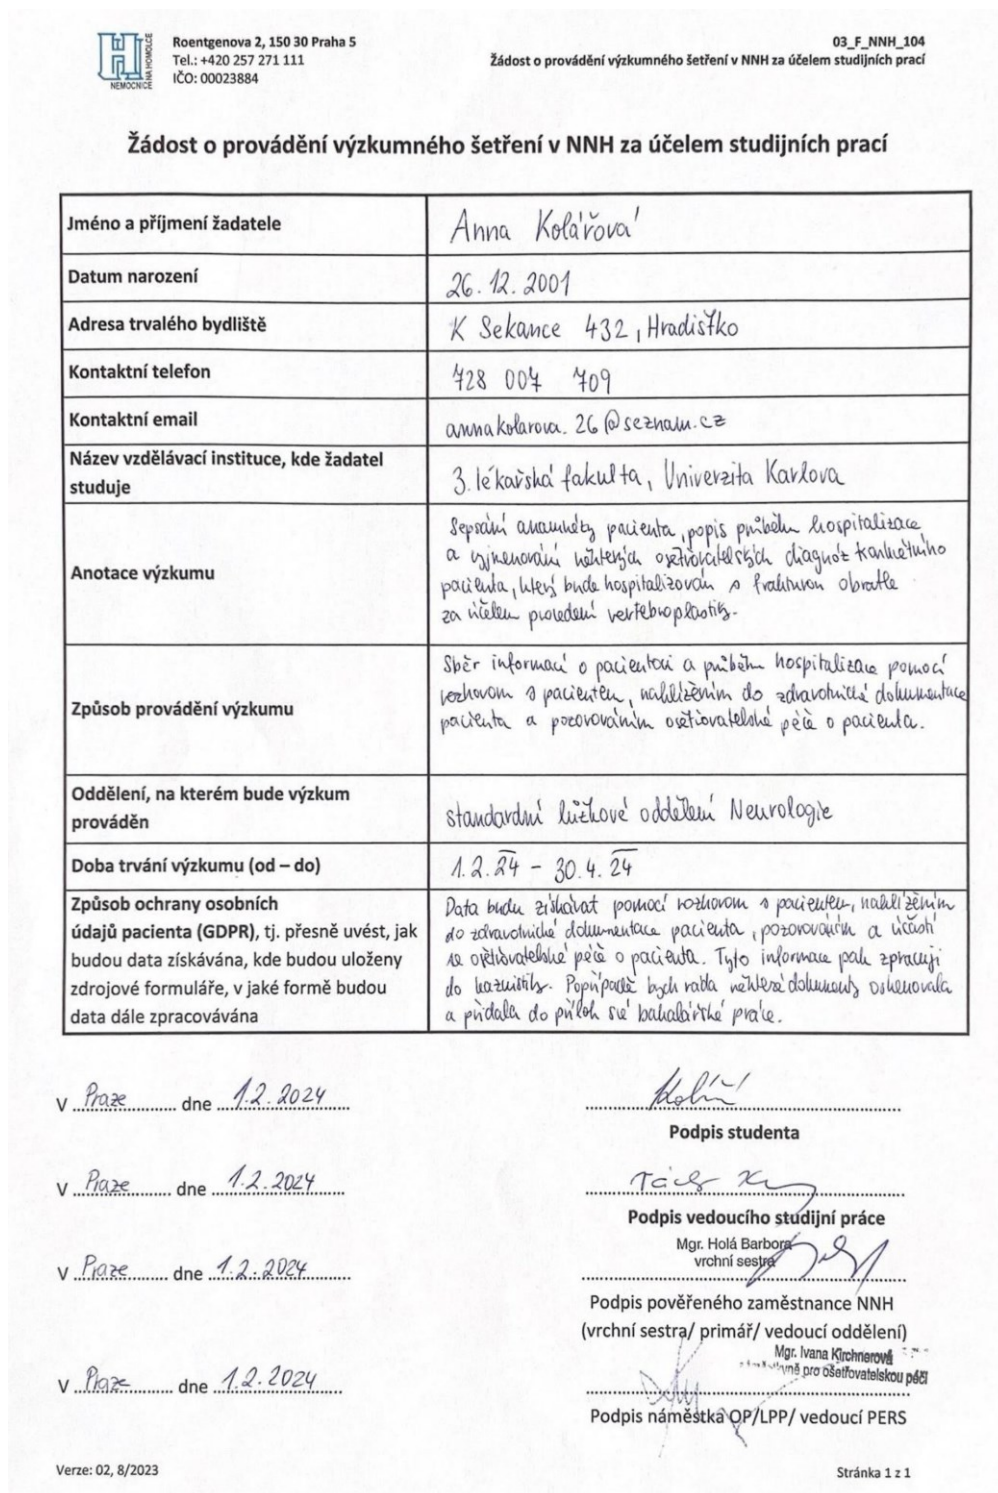 NEMOCNICE NA HOMOLCE
Roentgenova 2, 150 30 Praha 5
Tel.: +420 257 271 111
IČO: 00023884
03_F_NNH_104
Žádost o provádění výzkumného šetření v NNH za účelem studijních prací
Žádost o provádění výzkumného šetření v NNH za účelem studijních prací
Jméno a příjmení žadatele
Anna Kolářová
Datum narození
26.12.2001
Adresa trvalého bydliště
K Sekance 432, Hradištko
Kontaktní telefon
728 007 709
Kontaktní email
annakolarova.26@seznam.cz
Název vzdělávací instituce, kde žadatel
studuje
3. lékařská fakulta, Univerzita Karlova
Anotace výzkumu
Sepsání anamnézy pacienta, popis průběhu hospitalizace
a vyjmenování některých ošetřovatelských diagnóz konkrétního
pacienta, který bude hospitalizován s frakturou obratle
za účelem provedení vertebroplastiky.
Způsob provádění výzkumu
Sběr informací o pacientovi a průběhu hospitalizace pomocí
rozhovoru s pacientem, nahlížením do zdravotnické dokumentace
pacienta a pozorováním ošetřovatelské péče o pacienta.
Oddělení, na kterém bude výzkum
prováděn
standardní lůžkové oddělení Neurologie
Doba trvání výzkumu (od – do)
1.2.24 - 30.4.24
Způsob ochrany osobních
údajů pacienta (GDPR), tj. přesně uvést, jak
budou data získávána, kde budou uloženy
zdrojové formuláře, v jaké formě budou
data dále zpracovávána
Data budu získávat pomocí rozhovoru s pacientem, nahlížením
do zdravotnické dokumentace pacienta, pozorováním a účastí
na ošetřovatelské péče o pacienta. Tyto informace pak zpracuji
do kazuistiky. Popřípadě bych ráda některé dokumenty oskenovala
a přidala do příloh své bakalářské práce.
V Praze dne 1.2.2024
Podpis studenta
V Praze dne 1.2.2024
Podpis vedoucího studijní práce
Mgr. Holá Barbora
vrchní sestra
V Praze dne 1.2.2024
Podpis pověřeného zaměstnance NNH
(vrchní sestra/ primář/ vedoucí oddělení)
Mgr. Ivana Kirchnerová
pro ošetřovatelskou péči
V Praze dne 1.2.2024
Podpis náměstka OP/LPP/ vedoucí PERS
Verze: 02, 8/2023
Stránka 1 z 1